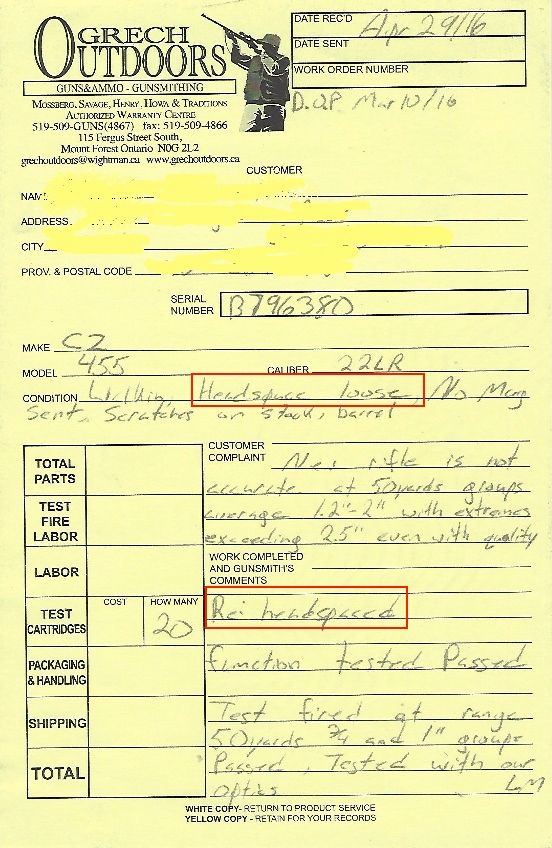 GRECH
OUTDOORS
GUNS&AMMO - GUNSMITHING
MOSSBERG, SAVAGE, HENRY, HOWA & TRADTIONS
AUTHORIZED WARRANTY CENTRE
519-509-GUNS(4867) fax: 519-509-4866
115 Fergus Street South,
Mount Forest Ontario N0G 2L2
grechoutdoors@wightman.ca www.grechoutdoors.ca
DATE REC'D Apr 29/16
DATE SENT
WORK ORDER NUMBER
D.O.P. Mar 10/16
CUSTOMER
NAME
ADDRESS
CITY
PROV. & POSTAL CODE
SERIAL NUMBER B796380
MAKE CZ
MODEL 455 CALIBER 22LR
CONDITION Headspace loose, No Mag
Sent, Scratches on stock, barrel
CUSTOMER
COMPLAINT New rifle is not
accurate at 50yards groups
average 1.2"-2" with extremes
exceeding 2.5" even with quality
WORK COMPLETED
AND GUNSMITH'S
COMMENTS
Re: headspaced
function tested Passed
Test fired at range
50yards 3/4 and 1" groups
Passed, Tested with our
optics LM
TOTAL PARTS
TEST FIRE LABOR
LABOR
TEST CARTRIDGES COST HOW MANY 20
PACKAGING & HANDLING
SHIPPING
TOTAL
WHITE COPY- RETURN TO PRODUCT SERVICE
YELLOW COPY - RETAIN FOR YOUR RECORDS